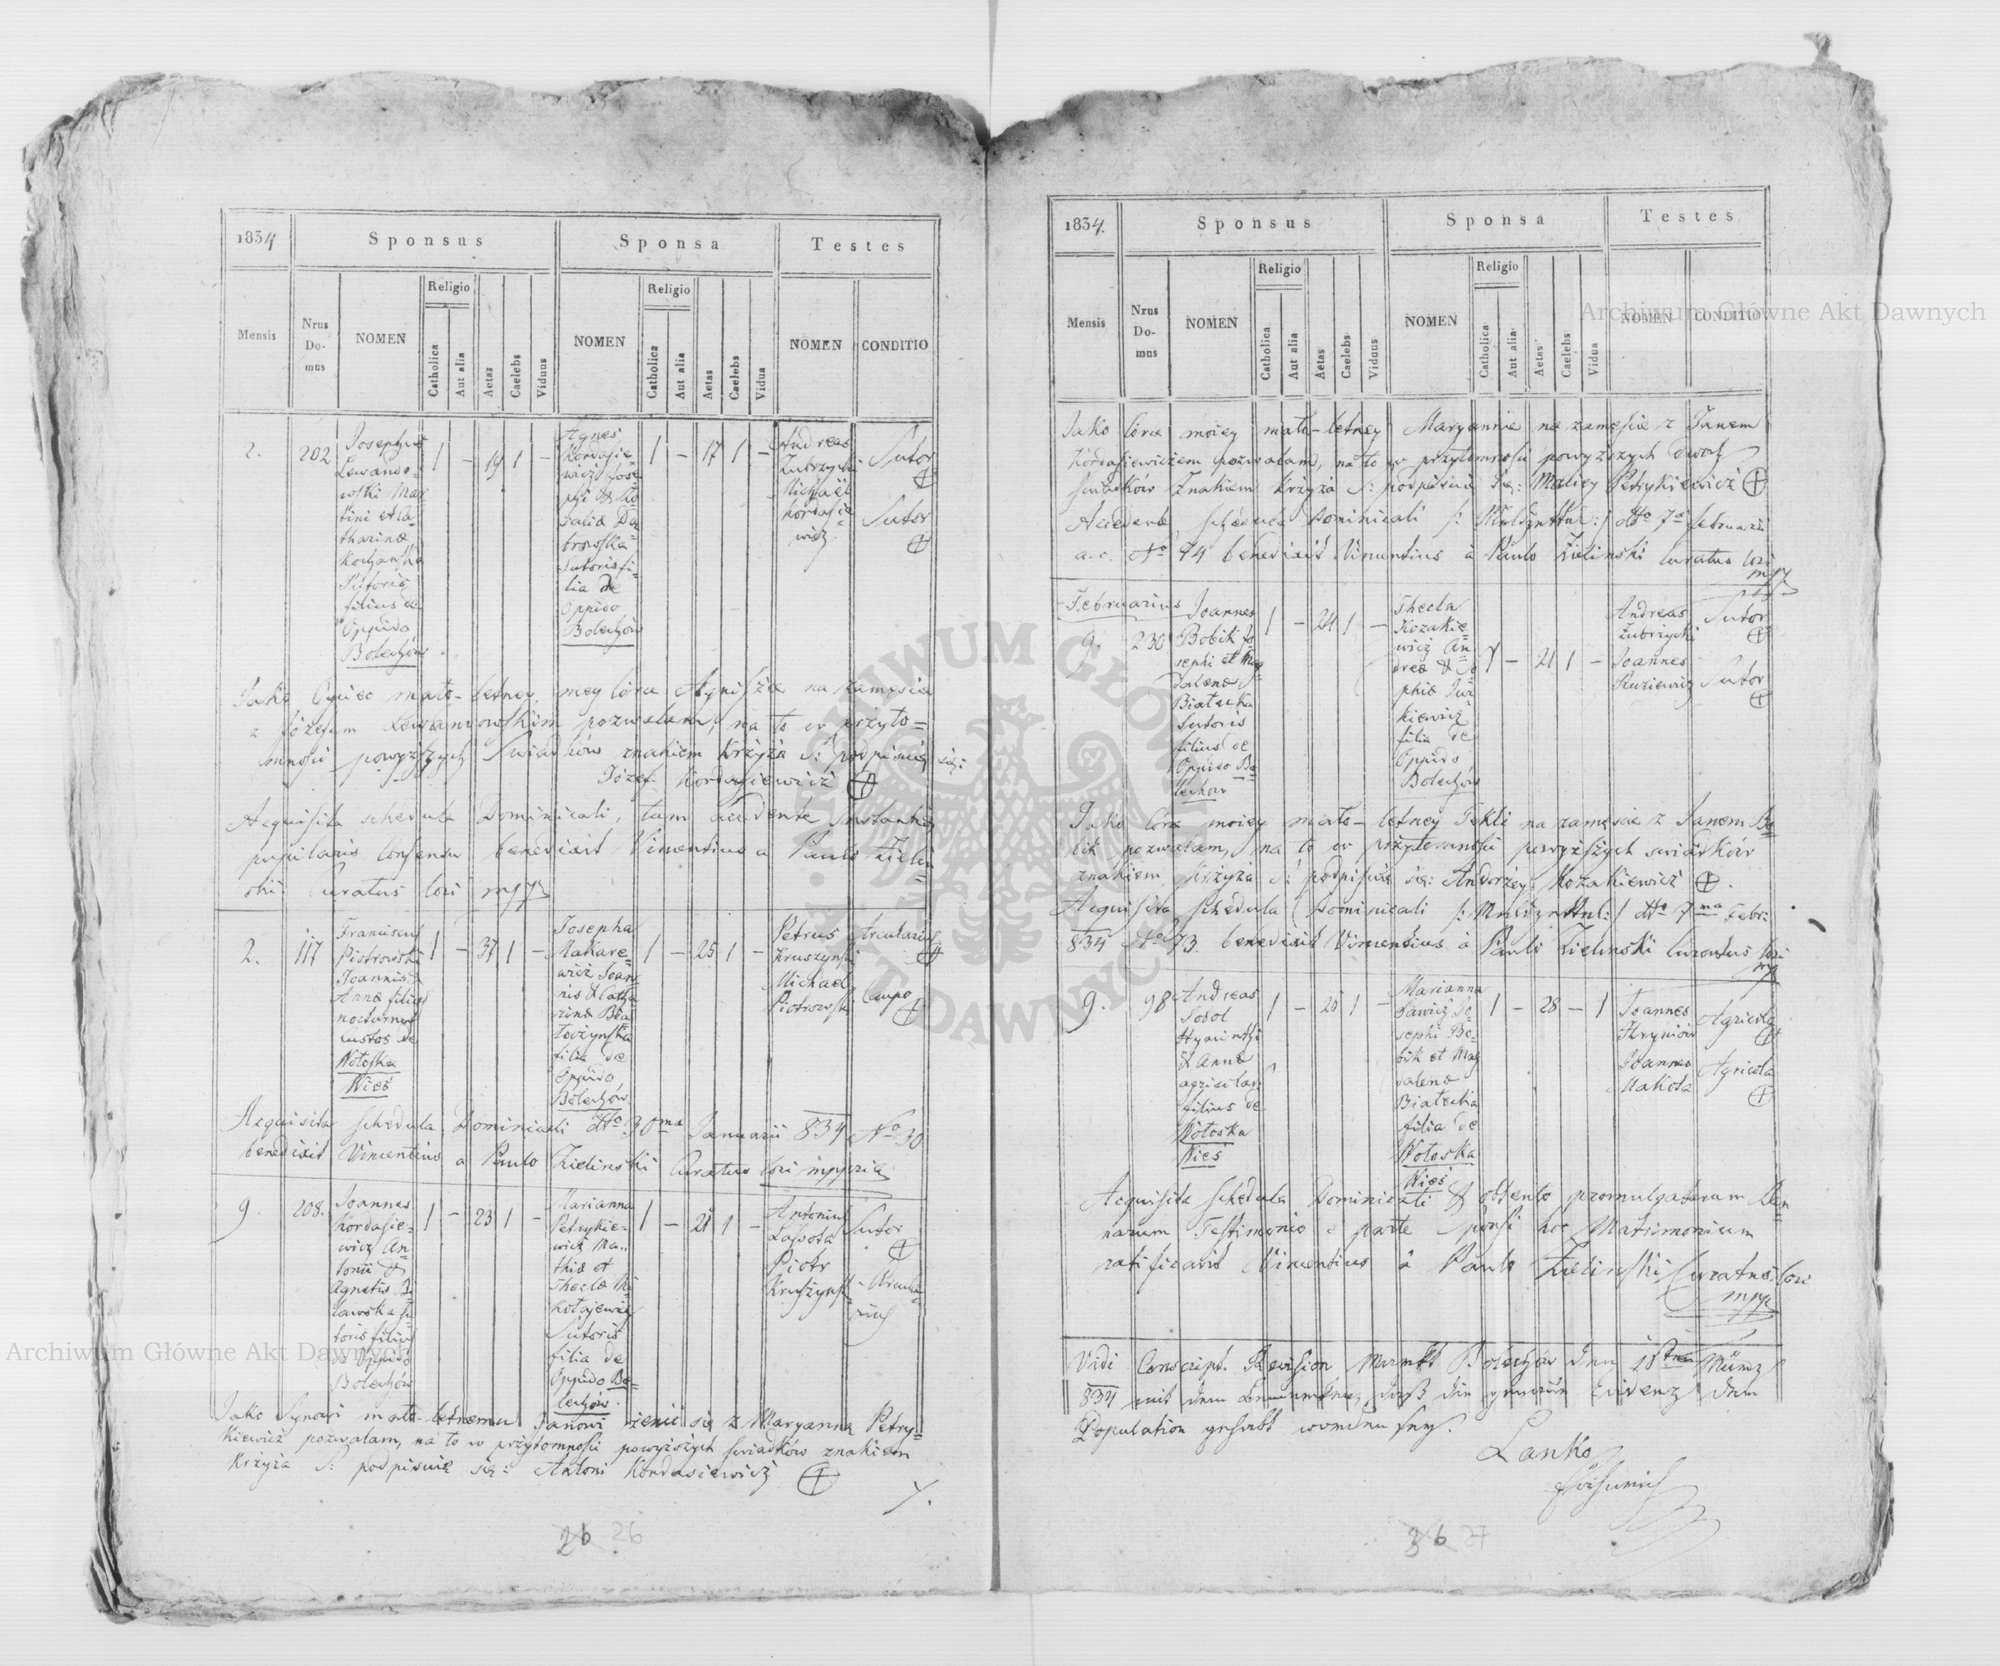 1834
Sponsus
Sponsa
Testes
Mensis
Nrus Do-mus
NOMEN
Religio
Catholica
Aut alia
Aetas
Caelebs
Viduus
NOMEN
Religio
Catholica
Aut alia
Aetas
Caelebs
Vidua
NOMEN
CONDITIO
2.
202
Josephus
Lewando-
wski Mar
tini et Ca-
tharinae
Kochańska
Sutoris
filius de
Oppido
Bolechów
1 – 19 1 –
Agnes
Kordasie
wicz Jose
phi & Ro
salia Da
browska
Sutoris fi-
lia de
Oppido
Bolechów
1 – 17 1 –
Andreas
Zubrzycki
Michael
Kordasie
wicz
Sutor
Sutor
Jako Ojciec mało-letney mey córce Agniszce na zamęscie
z Józefem Lewandowskim pozwalam, na to w przyto=
mności powyższych Swiadków znakiem Krzyża S: podpisuię się:
Józef Kordasiewicz
Acquisita schedula Dominicali, tum accedente Instantiae
pupilaris consensu benedixit Vincentius a Paulo Zielin=
ski Curatus loci mpp
2.
117
Franciscus
Piotrowski
Joannis &
Anna filius
nocturnus
custos de
Wołoska
Wieś
1 – 37 1 –
Josepha
Makare=
wicz Joan
nis & Catha
rina Bia
łoczyńska
filia de
Oppido
Bolechów
1 – 25 1 –
Petrus
Kruszyński
Michael
Piotrowski
Arcularius
Caupo
Acquisita schedula Dominicali dto 30ma Januarii 834 No 30
benedixit Vincentius a Paulo Zielinski Curatus loci mppria
9.
208.
Joannes
Kordasie-
wicz An
tonii &
Agnetis Bi
lawska Su
toris filius
de Oppido
Bolechów
1 – 23 1 –
Marianna
Petrykie=
wicz Ma..
thia et
Thecla Mi
kołajewicz
Sutoris
filia de
Oppido Bo=
lechów.
1 – 21 1 –
Antonius
Lassota
Piotr
Kruszyński
Sutor
Arcula-
rius
Jako Synowi mało-letnemu Janowi żenić się z Maryanną Petry=
kiewicz pozwalam, na to w przytomności powyższych swiadków znakiem
Krzyża S: podpisuię się: Antoni Kordasiewicz
26 26
1834.
Sponsus
Sponsa
Testes
Mensis
Nrus Do-mus
NOMEN
Religio
Catholica
Aut alia
Aetas
Caelebs
Viduus
NOMEN
Religio
Catholica
Aut alia
Aetas
Caelebs
Vidua
NOMEN
CONDITIO
Jako córce moiey mało-letney Maryannie na zamęście z Janem
Kordasiewiczem pozwalam, na to w przytomności powyższych dwóch
swiadków Znakiem Krzyża S: podpisuię się: Maciey Petrykiewicz
Accedente schedula Dominicali dto 7a februarii
a. c. No 94 benedixit Vincentius à Paulo Zielinski Curatus loci
mpp
Februarius
9.
230
Joannes
Bobik Jo
sephi et Mag
dalena
Białecka
Sutoris
filius de
Oppido Bo
lechow
1 – 24 1 –
Thecla
Kozakie
wicz An
drea & So
phia Jur
kiewicz
filia de
Oppido
Bolechów
1 – 21 1 –
Andreas
Zubrzycki
Joannes
Sutor
Sutor
Jako córce moiey mało-letney Tekli na zamęście z Janem Bo
bik pozwalam, na to w przytomności powyższych swiadków
znakiem Krzyża S: podpisuię się: Andrzey Kozakiewicz
Acquisita schedula Dominicali dto 7ma Febr:
834 No 73. benedixit Vincentius à Paulo Zielinski Curatus loci
mp
9.
98
Andreas
Sobol
& Anna
agricolar.
filius de
Wołoska
Wieś
1 – 20 1 –
Marianna
Sawicz Jo-
sephi Bo-
bik et Mag
dalena
Białecka
filia de
Wołoska
Wieś
1 – 28 – 1
Joannes
Hryniów
Joannes
Makota
Agricola
Agricola
Acquisita schedula Dominicali & obtento promulgatarum Den
narum Testimonio e parte Sponsi hoc Matrimonium
ratificavit Vincentius à Paulo Zielinski Curatus loci
mpp
Vidi Conscript. Revision Markt Bolechów den 18ten
834 mit dem Anmerken, daß die Evidenz dem
Population gesetzt worden sey.
Lanko
36 27
Archiwum Główne Akt Dawnych
Archiwum Główne Akt Dawnych
ARCHIWUM GŁÓWNE AKT DAWNYCH